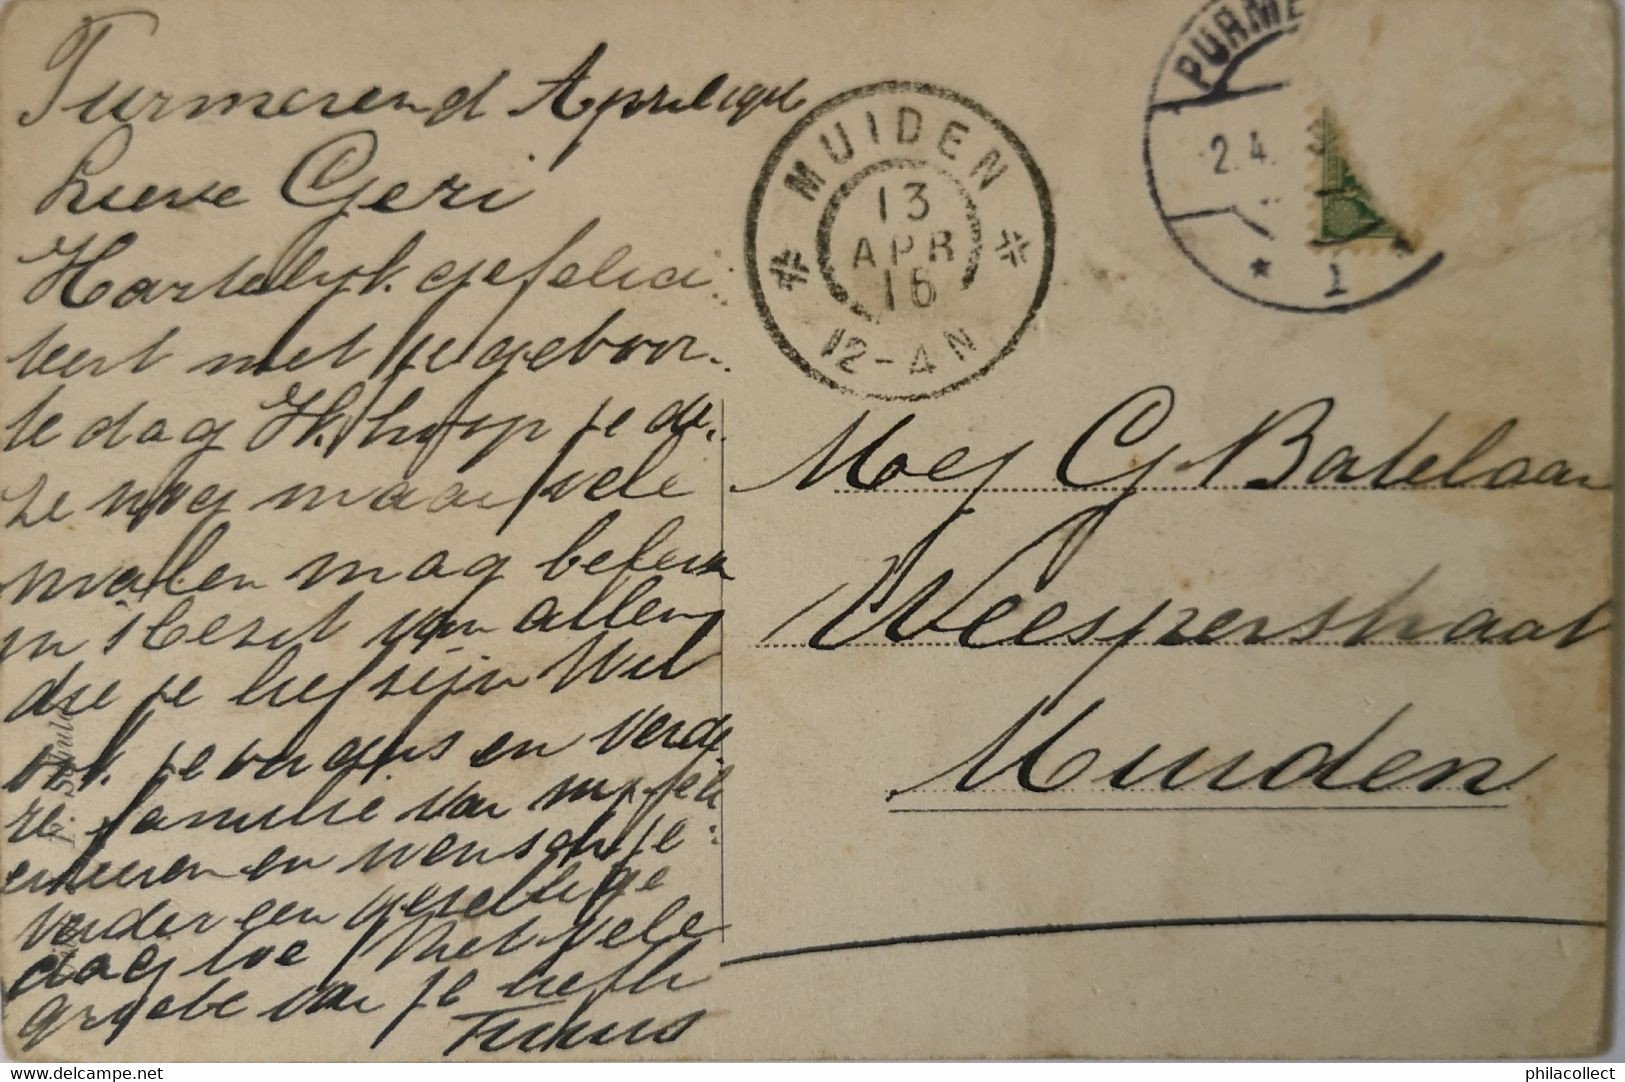 Purmerend April 1916
Lieve Geri
Hartelijk gefelici
teert met je geboor
te dag Ik hoop je de
ze nog maar vele
malen mag beleven
in 't bezit van allen
die je lief zijn Wil
ook je ouders en verde
re familie van mij felici
teeren en wensch je
verder een gezellige
dag toe Met vele
groete van je liefh
MUIDEN
13
APR
16
12-4 N
PURME
2.4.
1
Mej G Batelaan
Weesperstraat
Muiden
philacollect